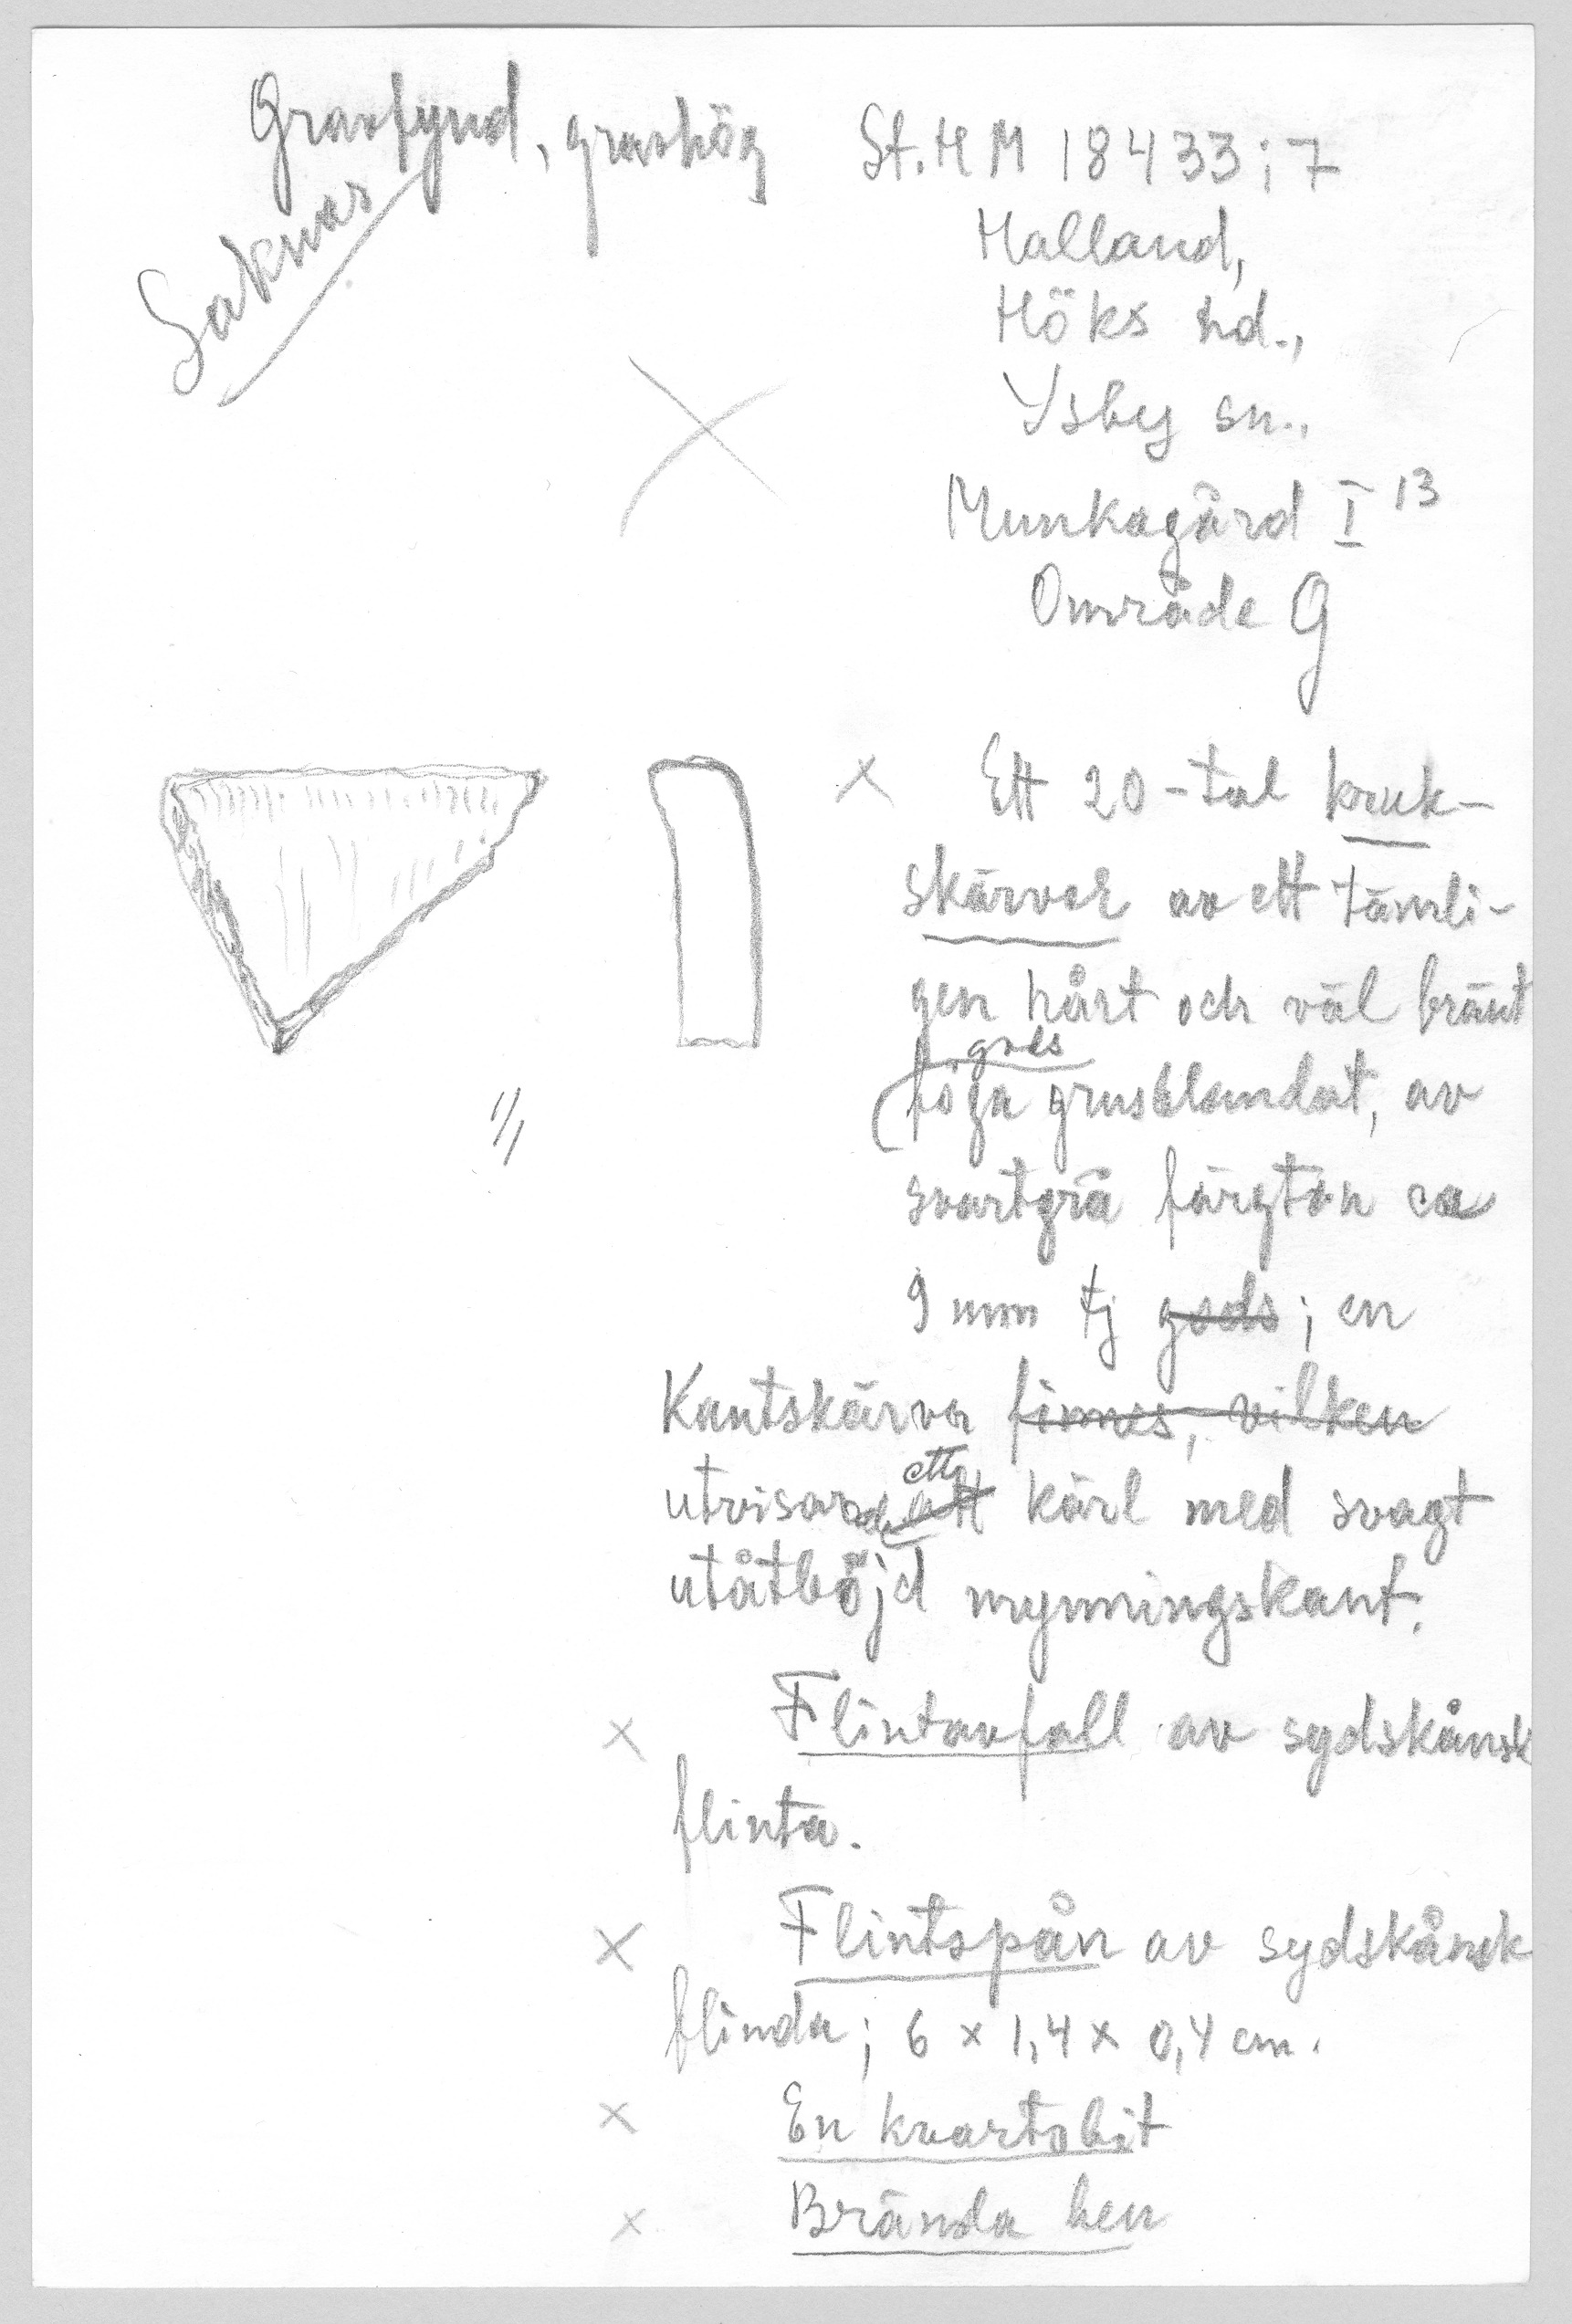 Gravfynd, gravhög St.HM 18433:7
Saknas
Halland,
Höks hd.,
Ysby sn.,
Munkagård I 13
Område G
Ett 20-tal kruk-
skärvor av ett tämli-
gen hårt och väl bränt
gods
föga grusblandat, av
svartgrå färgton ca
9 mm tj gods; en
Kantskärva finnes, vilken
utvisande ett att kärl med svagt
utåtböjd mynningskant.
1/1
Flintavfall av sydskånsk
flinta.
Flintspån av sydskånsk
flinda; 6 x 1,4 x 0,4 cm.
En kvartsbit
Brända ben